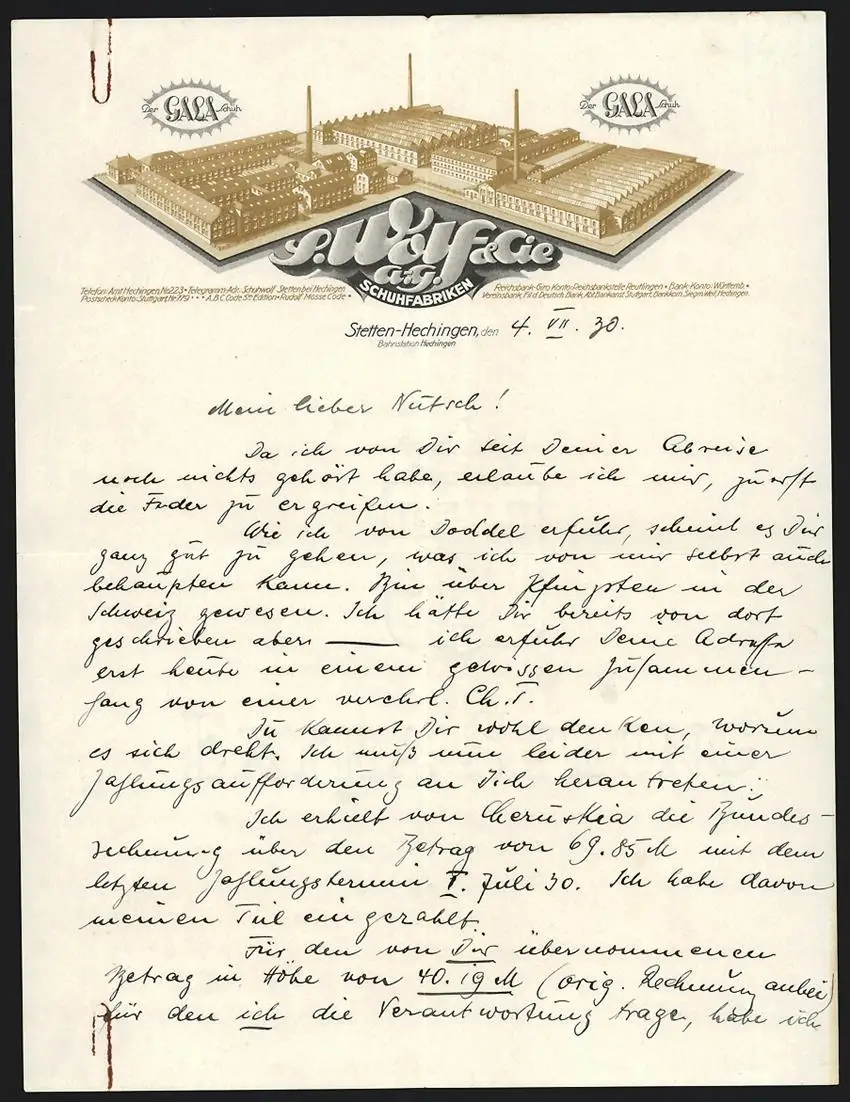 Der GALA Schuh
Der GALA Schuh
S. Wolf & Cie
A.-G.
SCHUHFABRIKEN
Telefon: Amt Hechingen Nr. 223 • Telegramm-Adr.: Schuhwolf Stetten bei Hechingen
Postscheck-Konto: Stuttgart Nr. 779 • • • A.B.C. Code 5th Edition • Rudolf Mosse Code •
Reichsbank-Giro Konto: Reichsbankstelle Reutlingen • Bank-Konto: Württemb. •
Vereinsbank, Fil. d. Deutsch. Bank, Abt. Bankanst. Stuttgart, Bankkom. Siegm. Weil, Hechingen.
Stetten-Hechingen, den 4. VII. 30.
Bahnstation Hechingen
Mein lieber Nutsch!
Da ich von Dir seit Deiner Abreise
noch nichts gehört habe, erlaube ich mir, zuerst
die Feder zu ergreifen.
Wie ich von Doddel erfuhr, scheint es Dir
ganz gut zu gehen, was ich von mir selbst auch
behaupten kann. Bin über Pfingsten in der
Schweiz gewesen. Ich hätte Dir bereits von dort
geschrieben aber — ich erfuhr Deine Adresse
erst heute in einem gewissen Zusammen-
hang von einer verehrl. Ch. T.
Du kannst Dir wohl denken, worum
es sich dreht. Ich muß nun leider mit einer
Zahlungsaufforderung an Dich herantreten:
Ich erhielt von Cheruskia die Bundes-
rechnung über den Betrag von 69.85 M mit dem
letzten Zahlungstermin I. Juli 30. Ich habe davon
meinen Teil eingezahlt.
Für den von Dir übernommenen
Betrag in Höhe von 40.19 M (orig. Rechnung anbei)
für den ich die Verantwortung trage, habe ich